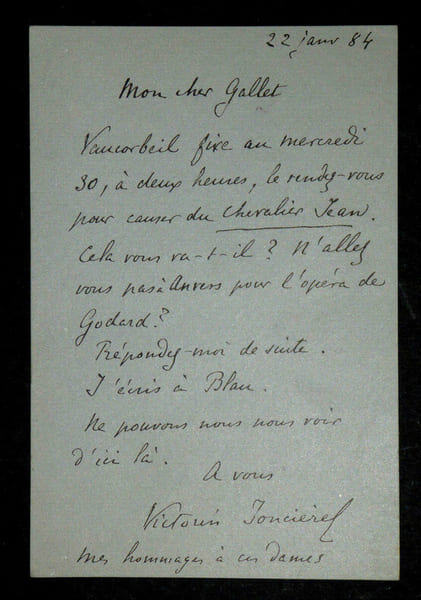 22 janv 84
Mon cher Gallet
Vaucorbeil fixe au mercredi
30, à deux heures, le rendez-vous
pour causer du Chevalier Jean.
Cela vous va-t-il ? N'allez
vous pas à Anvers pour l'opéra de
Godard ?
Répondez-moi de suite.
J'écris à Blau.
Ne pouvons nous nous voir
d'ici là.
A vous
Victorin Joncières
mes hommages à ces dames